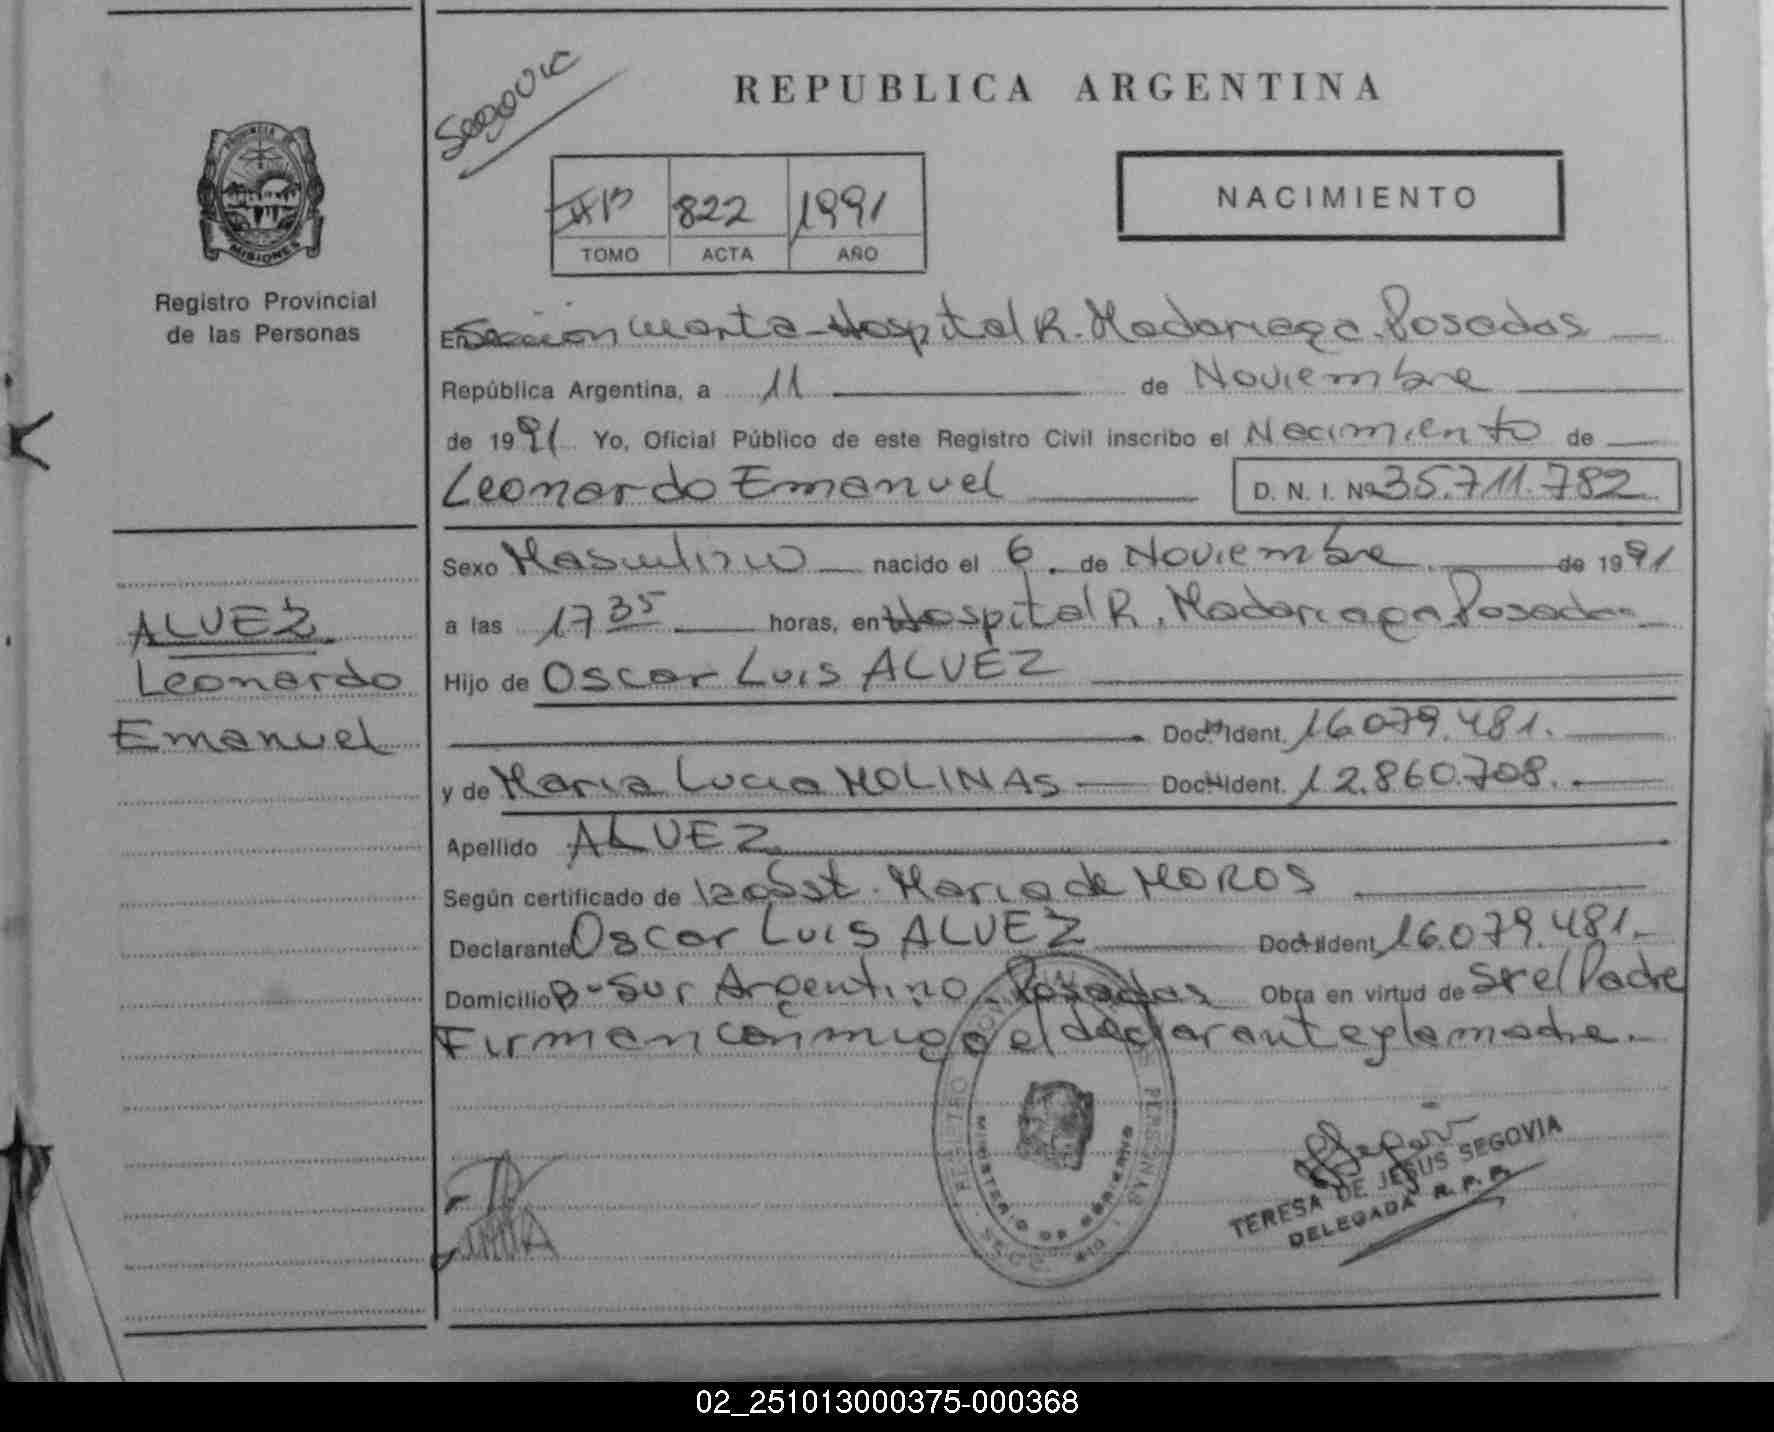 Segovia
REPUBLICA ARGENTINA
PROVINCIA DE
MISIONES
822 1991
TOMO ACTA AÑO
NACIMIENTO
Registro Provincial
de las Personas
En Sección cuarta - Hospital R. Madariaga. Posadas
República Argentina, a 11 de Noviembre
de 1991 Yo, Oficial Público de este Registro Civil inscribo el Nacimiento de
Leonardo Emanuel D. N. I. Nº 35.711.782
Sexo Masculino nacido el 6 de Noviembre de 1991
ALVEZ
Leonardo
Emanuel
a las 17 35 horas, en Hospital R. Madariaga Posadas
Hijo de Oscar Luis ALVEZ
Doc. Ident. 16.079.481.
y de Maria Lucia MOLINAS Doc. Ident. 12.860.708.
Apellido ALVEZ
Según certificado de la obst. Maria de MOROS
Declarante Oscar Luis ALVEZ Doc. Ident. 16.079.481.-
Domicilio B- Sur Argentino. Posadas Obra en virtud de Sr el Padre
Firman conmigo el declarante y la madre.-
REGISTRO PROVINCIAL DE LAS PERSONAS
MINISTERIO DE GOBIERNO
TERESA DE JESUS SEGOVIA
DELEGADA R. P. P.
02_251013000375-000368